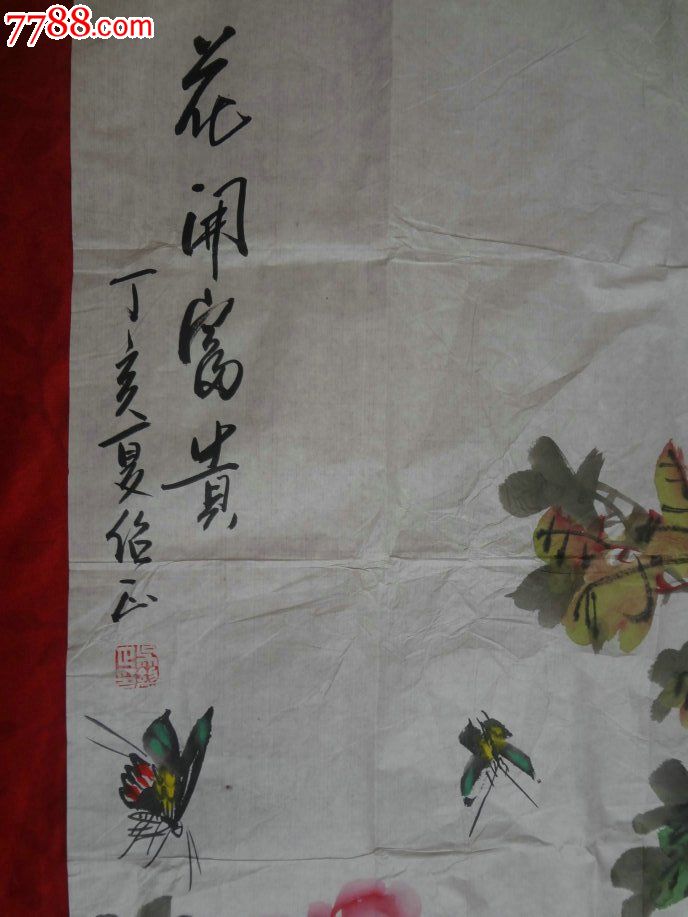 7788.com
花開富貴
丁亥夏绍正